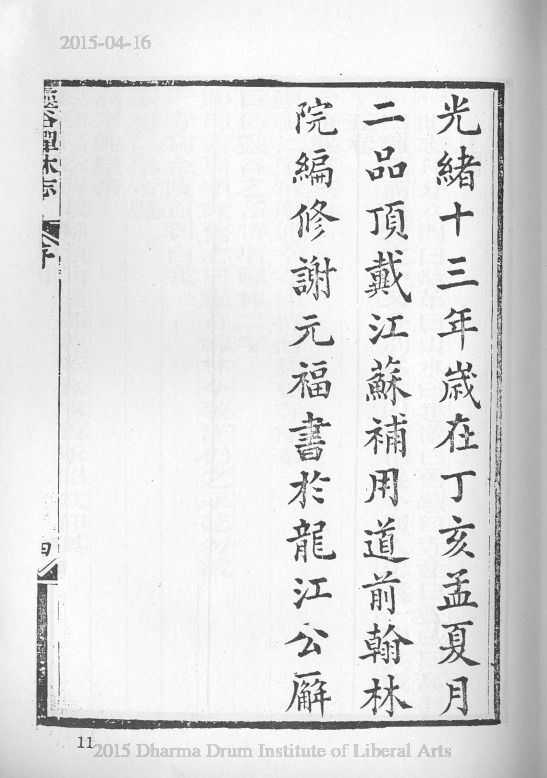 2015-04-16
光緒十三年歲在丁亥孟夏月
二品頂戴江蘇補用道前翰林
院編修謝元福書於龍江公廨
靈谷禪林志
序
四
11
2015 Dharma Drum Institute of Liberal Arts